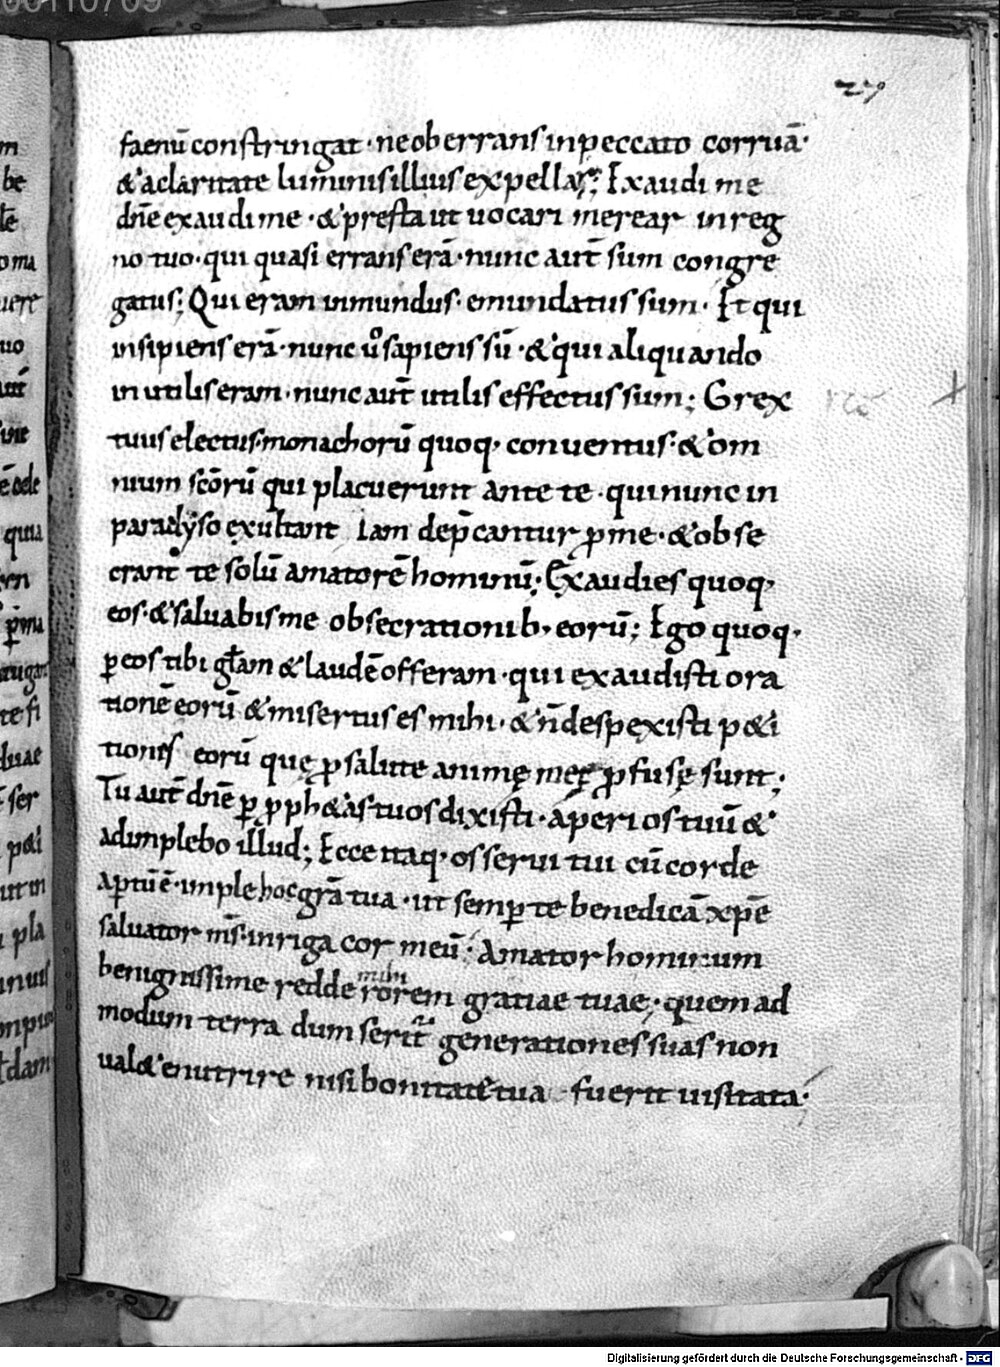 27
faenū constringat · ne oberrans in peccato corruā ·
& a claritate luminis illius expellar; Exaudi me
dn̄e exaudi me · & presta ut uocari merear in reg
no tuo · qui quasi errans erā · nunc aut̄ sum congre
gatus; Qui eram inmundus · emundatus sum · Et qui
insipiens erā · nunc ū̊ sapiens sū · & qui aliquando
inutilis eram · nunc aut̄ utilis effectus sum; Grex
tuus electus · monachorū quoq; conuentus · & om
nium sc̄orū qui placuerunt ante te · qui nunc in
paradyso exultant Iam dep̄cantur ꝓ me · & obse
crant te solū amatorē hominū; Exaudies quoq;
eos · & saluabis me obsecrationib; eorū; Ego quoq;
ꝑ eos tibi gl̄am & laudē offeram · qui exaudisti ora
tionē eorū & misertus es mihi · & n̄ despexisti p&i
tiones eorū quę ꝓ salute animę meę ꝓfusę sunt;
Tu aut̄ dn̄e ꝑ ꝓph&ās tuos dixisti · aperi os tuū &
adimplebo illud; Ecce itaq; os serui tui cū corde
aꝑtū ē · imple hoc gr̄a tua · ut semꝑ te benedicā xp̄e
saluator m̄s · inriga cor meū; Amator hominum
benignissime redde mihi rorem gratiae tuae; quem ad
modum terra dum serit̄ generationes suas non
ual& enutrire nisi bonitate tua fuerit uisitata ·
m
be
oma
uere
uo
qua
te fi
duae
ser
p&i
pla